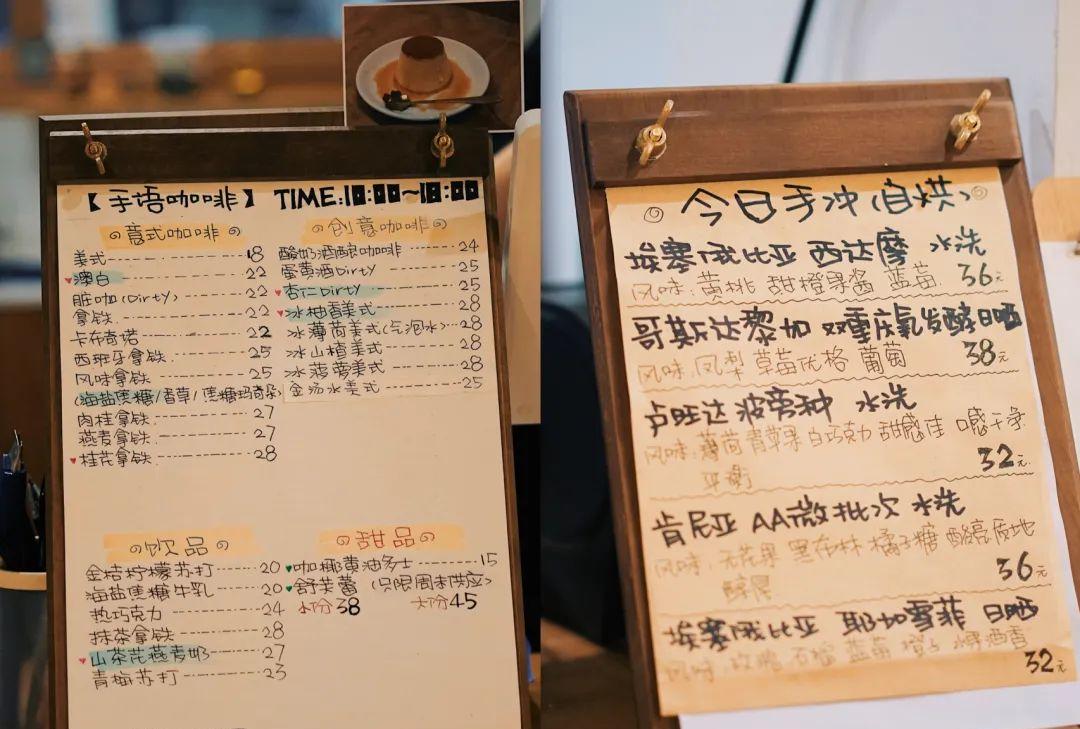 【手语咖啡】 TIME:10:00~18:00
意式咖啡
美式 18
澳白 22
脏咖(Dirty) 22
拿铁 22
卡布奇诺 22
西班牙拿铁 25
风味拿铁 25
(海盐焦糖/香草/焦糖玛奇朵)
肉桂拿铁 27
燕麦拿铁 27
桂花拿铁 28
创意咖啡
酸奶酒酿咖啡 24
蛋黄酒Dirty 25
杏仁Dirty 25
冰柚香美式 28
冰薄荷美式(气泡水) 28
冰山楂美式 28
冰菠萝美式 28
金汤冰美式 25
饮品
金桔柠檬苏打 20
海盐焦糖牛乳 20
热巧克力 24
抹茶拿铁 28
山茶花燕麦奶 27
青梅苏打 23
甜品
咖椰黄油多士 15
舒芙蕾 (只限周末供应)
小份38 大份45
今日手冲(自烘)
埃塞俄比亚 西达摩 水洗
风味:黄桃 甜橙果酱 蓝莓 36元
哥斯达黎加 双重厌氧发酵日晒
风味:凤梨 草莓优格 葡萄 38元
卢旺达 波旁种 水洗
风味:薄荷 青苹果 白巧克力 甜感佳 口感干净
平衡 32元
肯尼亚 AA微批次 水洗
风味:无花果 黑布林 橘子糖 酸亮质地
醇厚 36元
埃塞俄比亚 耶加雪菲 日晒
风味:玫瑰 石榴 蓝莓 橙子 水果酒香
32元